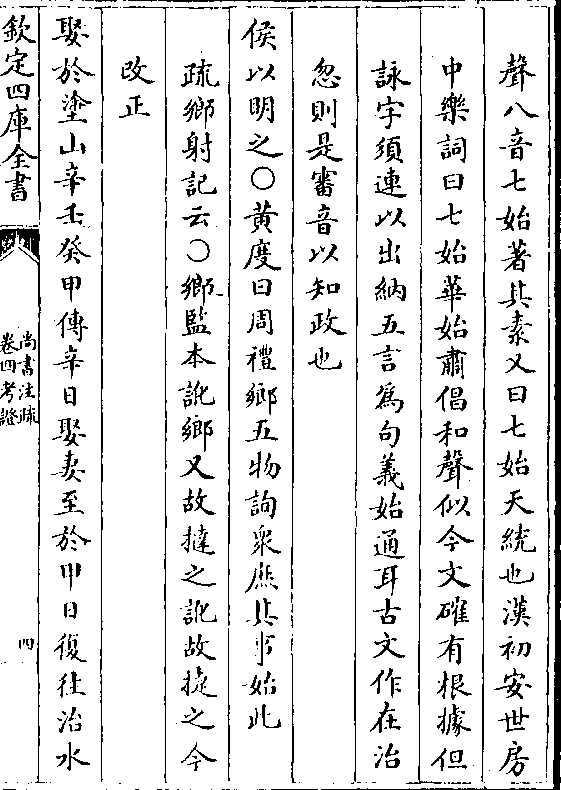 聲八音七始著其素又曰七始天統也漢初安世房
中樂詞曰七始華始肅倡和聲似今文確有根據但
詠字須連以出納五言為句義始通耳古文作在治
忽則是審音以知政也
侯以明之○黄度曰周禮鄉五物詢衆庶其事始此
疏鄉射記云○鄉監本訛鄉又故撻之訛故捷之今
改正
娶於塗山辛壬癸甲傳辛日娶妻至於甲日復往治水
欽定四庫全書
尚書注疏
卷四考證
四